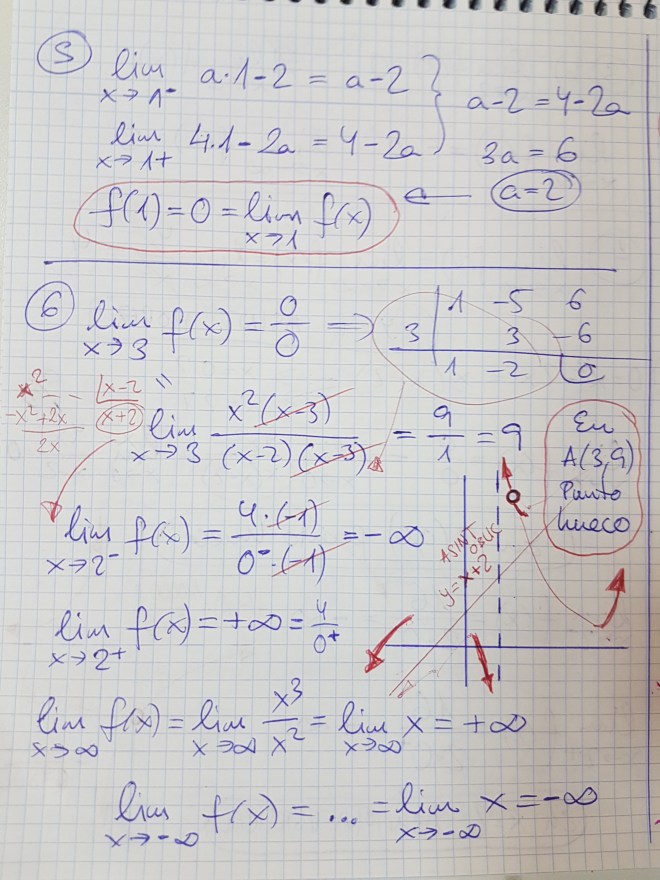 5
lim x→1⁻ a·1-2 = a-2
lim x→1+ 4·1-2a = 4-2a
a-2=4-2a
3a=6
a=2
f(1)=0=lim x→1 f(x)
6
lim x→3 f(x) = 0/0 ⇒
1 -5 6
3 3 -6
1 -2 0
x² x-2
-x²+2x x+2
2x
lim x→3 x²(x-3)/(x-2)(x-3) = 9/1 = 9
En
A(3,9)
Punto
hueco
lim x→2⁻ f(x) = 4·(-1)/0⁻·(-1) = -∞
ASINT
OBLIC
y=x+2
lim x→2+ f(x) = +∞ = 4/0⁺
lim x→∞ f(x) = lim x→∞ x³/x² = lim x→∞ x = +∞
lim x→-∞ f(x) = ... = lim x→-∞ x = -∞